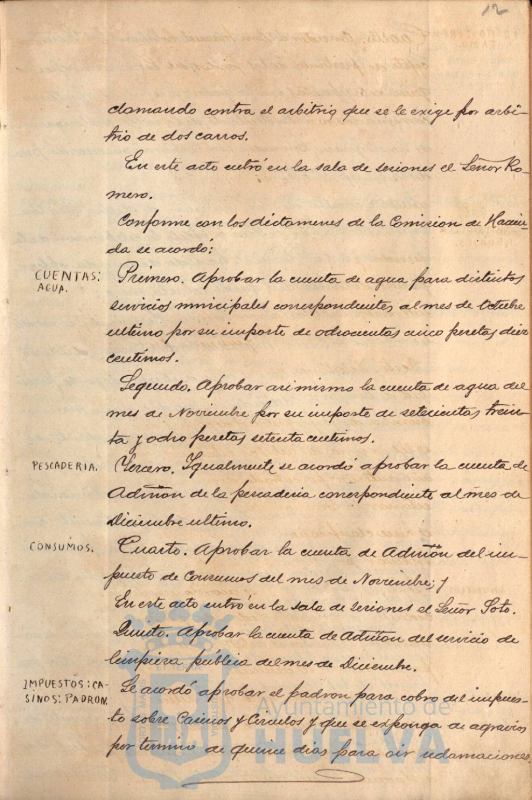 12
clamando contra el arbitrio que se le exige por arbi-
trio de dos carros.
En este acto entró en la sala de sesiones el Señor Ro-
mero.
Conforme con los dictamenes de la Comision de Hacien-
da se acordó:
CUENTAS:
AGUA.
Primero. Aprobar la cuenta de agua para distintos
servicios municipales correspondientes al mes de Octubre
ultimo por su importe de ochocientas cinco pesetas diez
centimos.
Segundo. Aprobar asi mismo la cuenta de agua del
mes de Noviembre por su importe de setecientas trein-
ta y ocho pesetas setenta centimos.
PESCADERIA.
Tercero. Igualmente se acordó aprobar la cuenta de
Admon de la pescaderia correspondiente al mes de
Diciembre ultimo.
CONSUMOS.
Cuarto. Aprobar la cuenta de Admon del im-
puesto de Consumos del mes de Noviembre; y
En este acto entró en la sala de sesiones el Señor Soto.
Quinto. Aprobar la cuenta de Admon del servicio de
limpieza pública del mes de Diciembre.
IMPUESTOS: CA-
SINOS: PADRON.
Se acordó aprobar el padron para cobro del impues-
to sobre Casinos y Circulos y que se exponga de agravios
por termino de quince dias para oir reclamaciones.
Ayuntamiento de
HUELVA